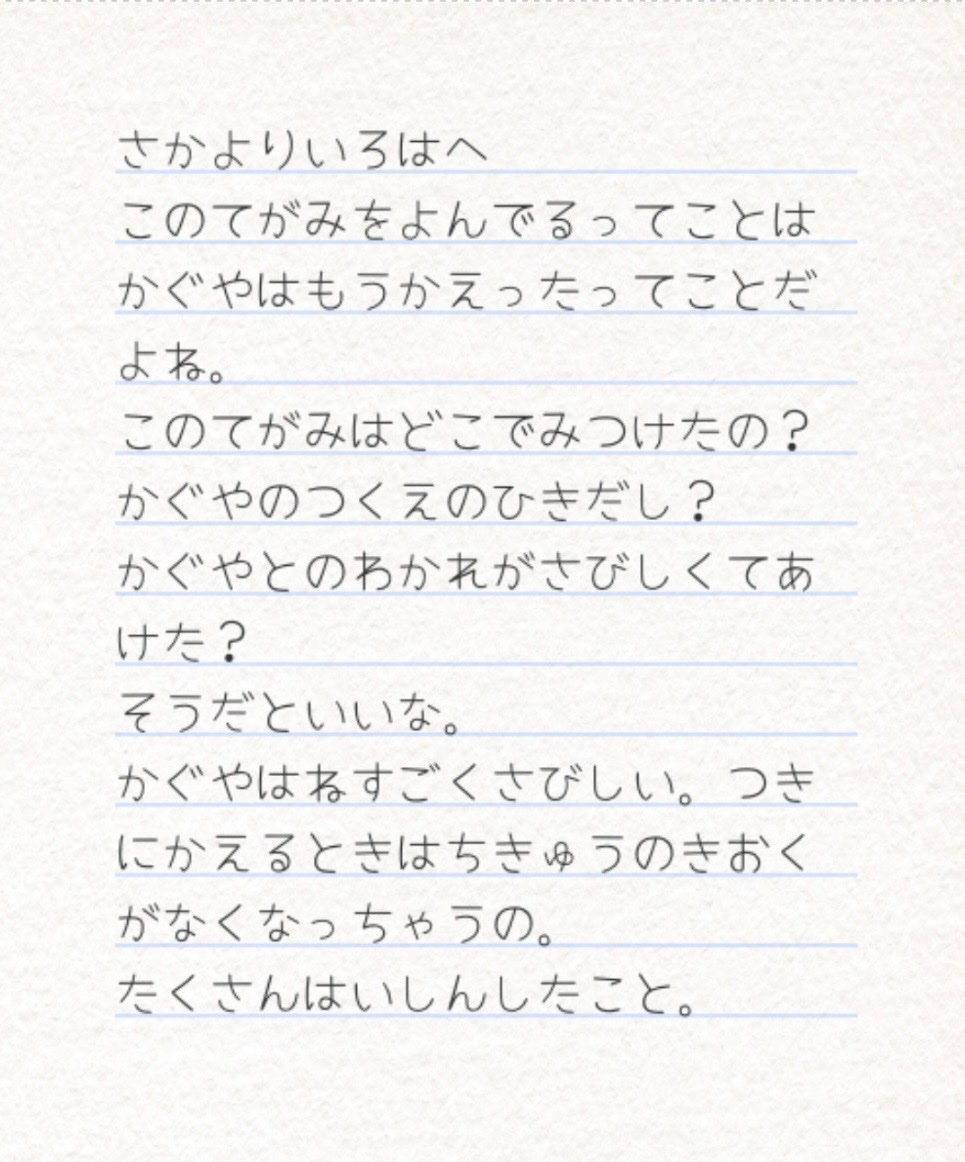 さかよりいろはへ
このてがみをよんでるってことは
かぐやはもうかえったってことだ
よね。
このてがみはどこでみつけたの？
かぐやのつくえのひきだし？
かぐやとのわかれがさびしくてあ
けた？
そうだといいな。
かぐやはねすごくさびしい。つき
にかえるときはちきゅうのきおく
がなくなっちゃうの。
たくさんはいしんしたこと。